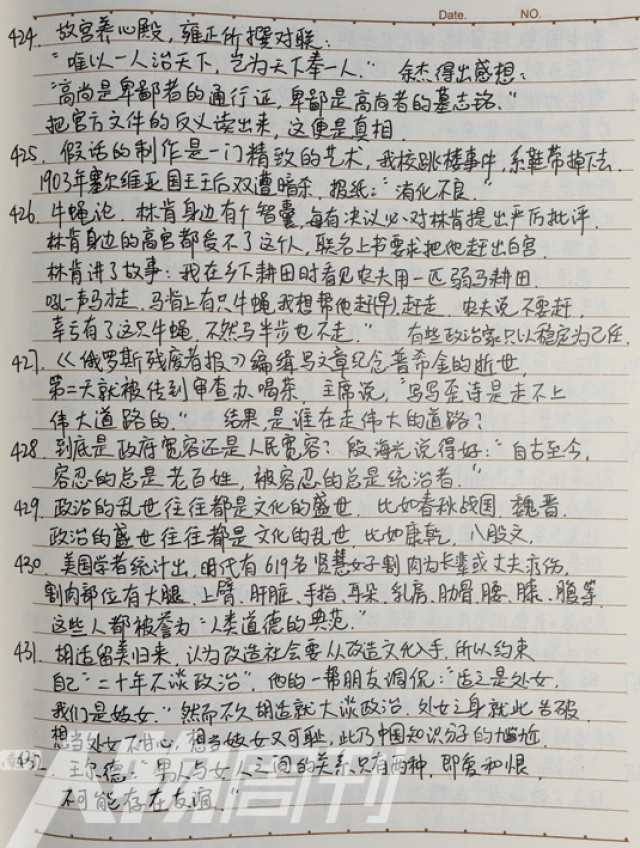 Date. NO.
424. 故宫养心殿，雍正所撰对联：
“唯以一人治天下，岂为天下奉一人。” 余杰得出感想：
“高尚是卑鄙者的通行证，卑鄙是高尚者的墓志铭。”
把官方文件的反义读出来，这便是真相.
425. 假话的制作是一门精致的艺术，我校跳楼事件，系鞋带掉下去.
1903年塞尔维亚国王王后双遭暗杀，报纸：“消化不良。”
426. 牛蝇论. 林肯身边有个智囊，每有决议必对林肯提出严厉批评.
林肯身边的高官都受不了这个人，联名上书要求把他赶出白宫.
林肯讲了故事：我在乡下耕田时看见农夫用一匹弱马耕田.
吼一声马才走. 马背上有只牛蝇，我想帮他赶(早)，赶走. 农夫说不要赶，
幸亏有了这只牛蝇，不然马半步也不走。” 有些政治家只以稳定为己任.
427.《〈俄罗斯残废者报〉》编缉写文章纪念普希金的逝世，
第二天就被传到审查办喝茶. 主席说，“写写歪诗是走不上
伟大道路的。” 结果，是谁在走伟大的道路？
428. 到底是政府宽容还是人民宽容？殷海光说得好：“自古至今，
容忍的总是老百姓，被容忍的总是统治者。”
429. 政治的乱世往往都是文化的盛世. 比如春秋战国，魏晋.
政治的盛世往往都是文化的乱世，比如康乾，八股文.
430. 美国学者统计出，明代有619名贤慧女子割肉为长辈或丈夫疗伤，
割肉部位有大腿、上臂、肝脏、手指、耳朵、乳房、肋骨、腰、膝、腹等.
这些人都被誉为“人类道德的典范。”
431. 胡适留美归来，认为改造社会要从改造文化入手，所以约束
自己“二十年不谈政治”，他的一帮朋友调侃：“适之是处女，
我们是妓女。”然而不久胡适就大谈政治，处女之身就此告破.
想当处女不甘心，想当妓女又可耻，此乃中国知识分子的尴尬.
432. 王尔德：“男人与女人之间的关系只有两种，即爱和恨，
不可能存在友谊。”
人物周刊